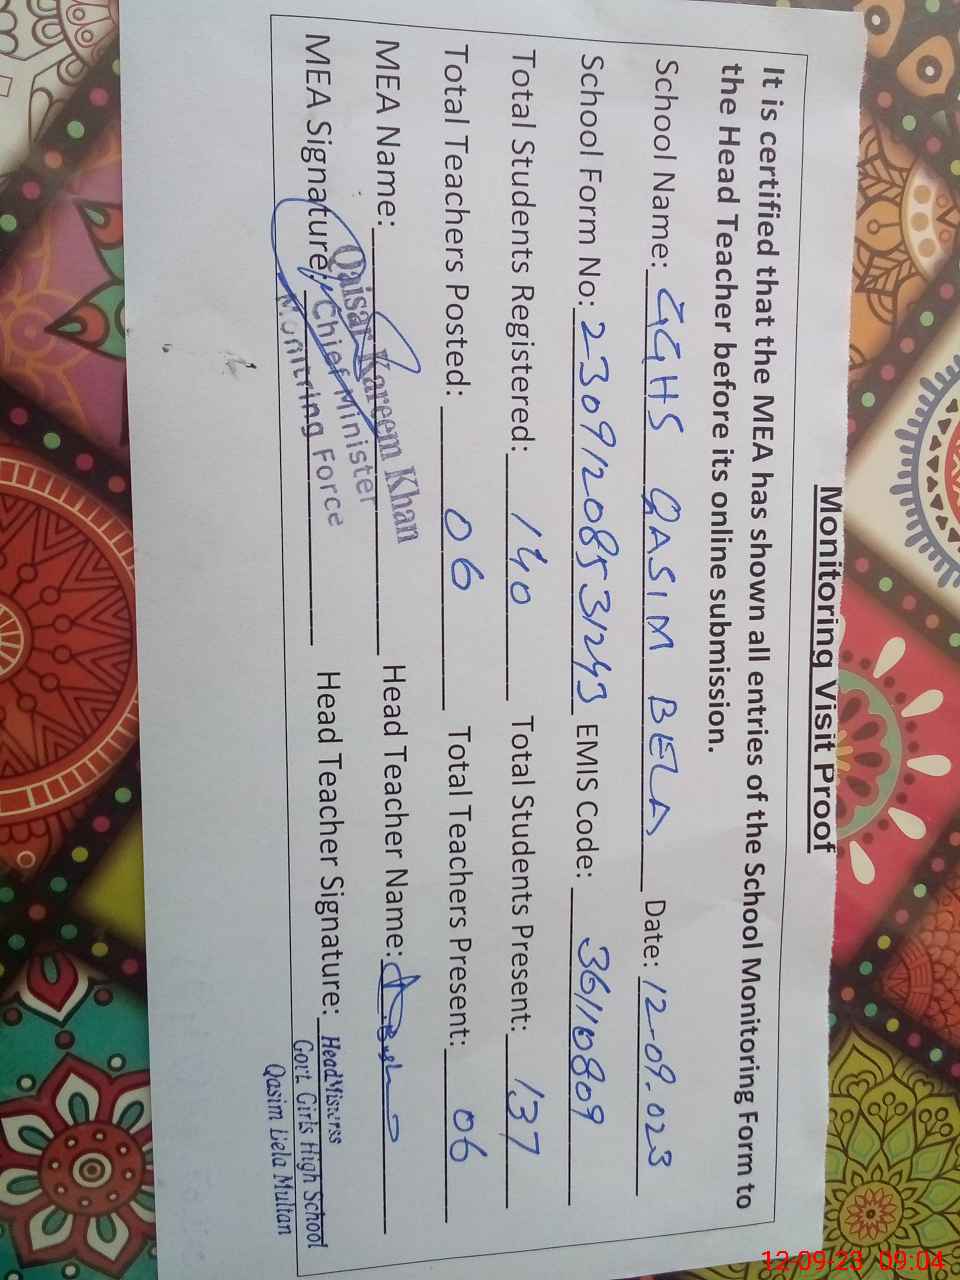 Monitoring Visit Proof
It is certified that the MEA has shown all entries of the School Monitoring Form to
the Head Teacher before its online submission.
School Name: GGHS QASIM BELA Date: 12-09-023
School Form No: 23091208531243 EMIS Code: 36110809
Total Students Registered: 140 Total Students Present: 137
Total Teachers Posted: 06 Total Teachers Present: 06
MEA Name: Qaisar Kareem Khan Head Teacher Name:
Chief Minister
MEA Signature: Monitring Force Head Teacher Signature: HeadMistress
Govt. Girls High School
Qasim Bela Multan
12-09-23 09:04